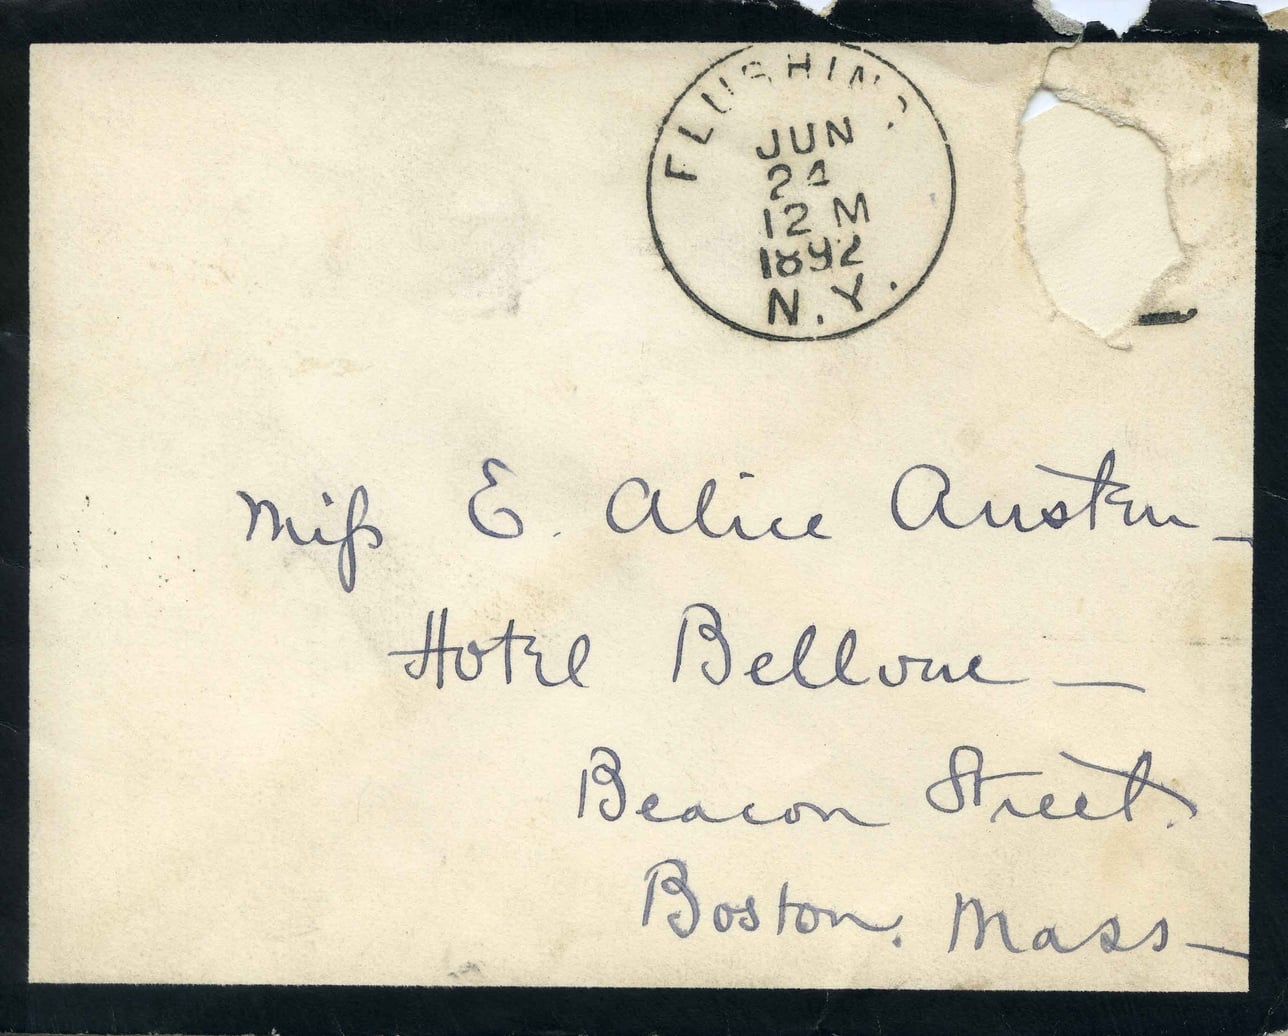 FLUSHING
JUN
24
12 M
1892
N.Y.
Miss E. Alice Austen
Hotel Bellvue
Beacon Street.
Boston. Mass